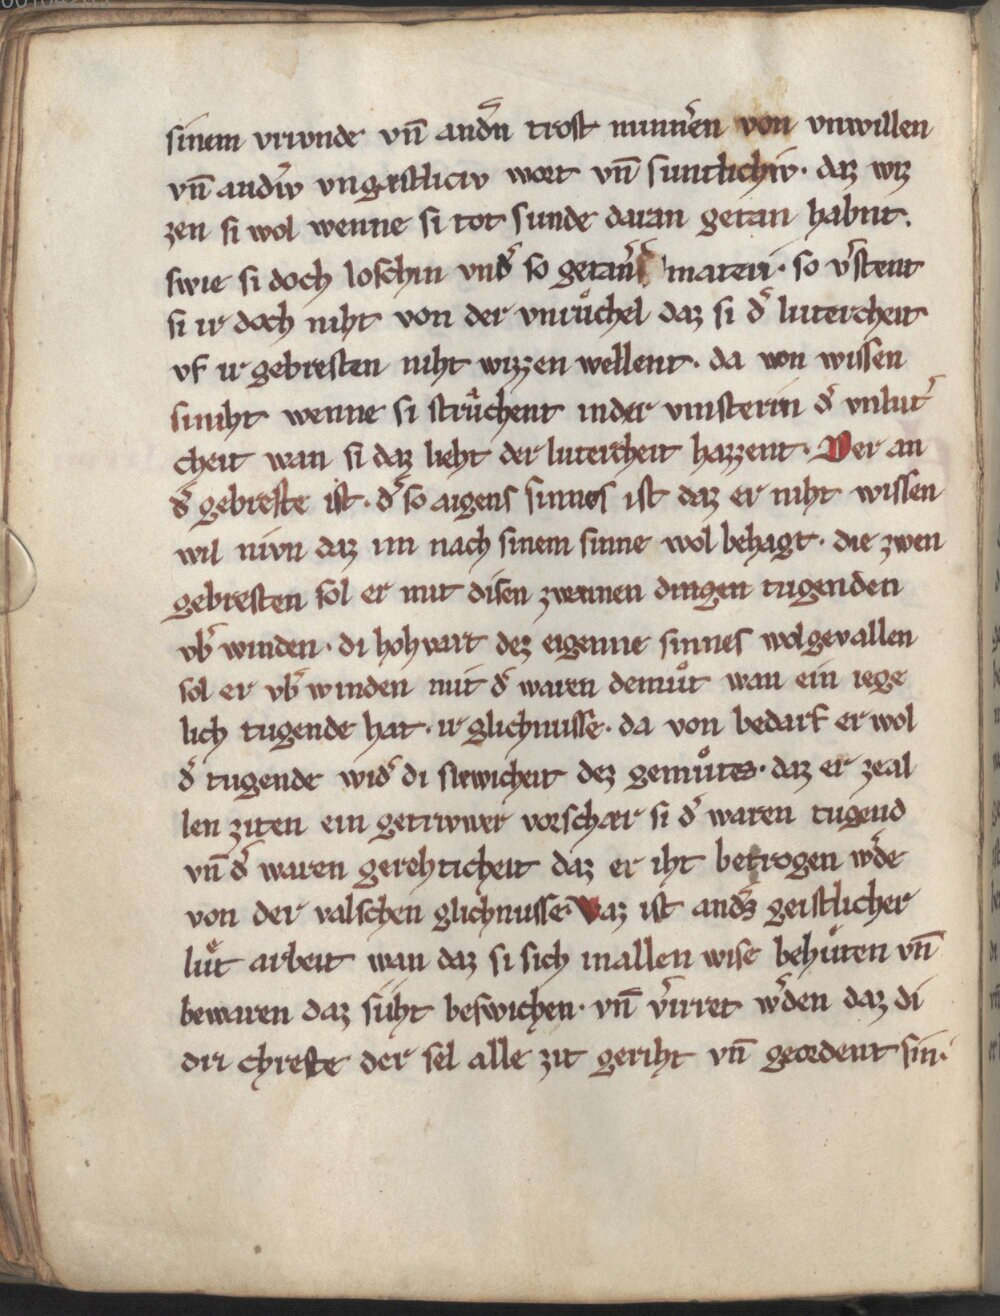 sinem vriunde vn̄ andˢn trost nimmˢen von vnwillen
vn̄ andˢiv vngæstliciv wort vn̄ suntlichiv · daz wiz
zen si wol wenne si tot sunde daran getan habnt .
swie si doch loschin vndˢ so getanˢ materi · so vˢstent
si ir doch niht von der vnruͦchel daz si dˢ lutercheit
vf ir gebresten niht wizzen wellent · da von wissen
si niht wenne si struͦchent in der vinsterin dˢ vnlutˢ
cheit wan si daz lieht der lutercheit hazzent · Der an
dˢ gebreste ist · dˢ so aigens sinnes ist daz er niht wissen
wil nivn daz im nach sinem sinne wol behagt · die zwen
gebresten sol er mit disen zwæinen dingen tugenden
vbˢ winden · di hohvart dez eigenne sinnes wolgevallen
sol er vbˢ winden mit dˢ waren demuͦt wan ein iege
lich tugende hat · ir glichnusse · da von bedarf er wol
dˢ tugende widˢ di sinwicheit dez gemuͦtes · daz er ze al
len ziten ein getriwwer vorschær si dˢ waren tugend
vn̄ dˢ waren gerehticheit daz er iht betrogen wˢde
von der valschen glichnusse · Waz ist andˢs geistlicher
luͦt arbeit wan daz si sich in allen wise behuͦten vn̄
bewaren daz si iht beswichen · vn̄ vˢirret wˢden daz di
dri chrefte der sel alle zit geriht vn̄ geordent sin ·